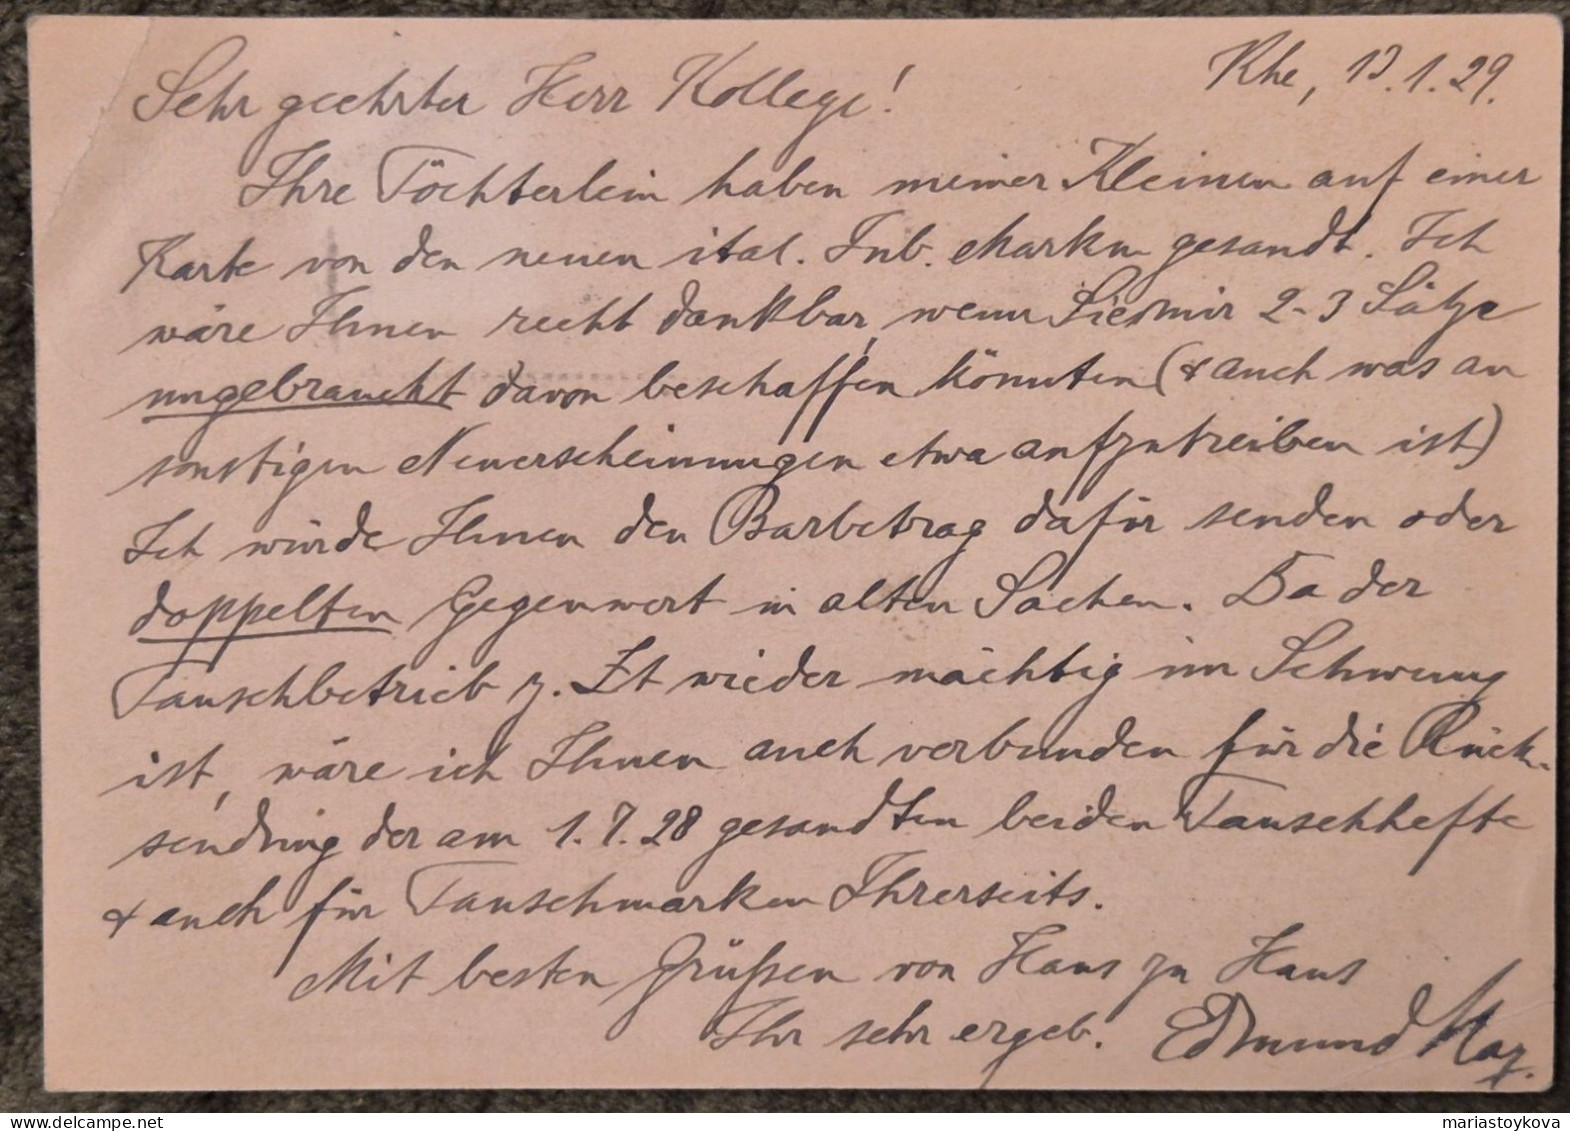 Rhe, 13.1.29.
Sehr geehrter Herr Kollege!
Ihre Töchterlein haben meiner Kleinen auf einer
Karte von den neuen ital. Jub. Marken gesandt. Ich
wäre Ihnen recht dankbar, wenn Sie mir 2-3 Sätze
ungebraucht davon beschaffen könnten (& auch was an
sonstigen Neuerscheinungen etwa aufzutreiben ist)
Ich würde Ihnen den Barbetrag dafür senden oder
doppelten Gegenwert in alten Sachen. Da der
Tauschbetrieb z. Zt wieder mächtig im Schwung
ist, wäre ich Ihnen auch verbunden für die Rück-
sendung der am 1.7.28 gesandten beiden Tauschhefte
& auch für Tauschmarken Ihrerseits.
Mit besten Grüßen von Haus zu Haus
Ihr sehr ergeb. Edmund
mariastoykova